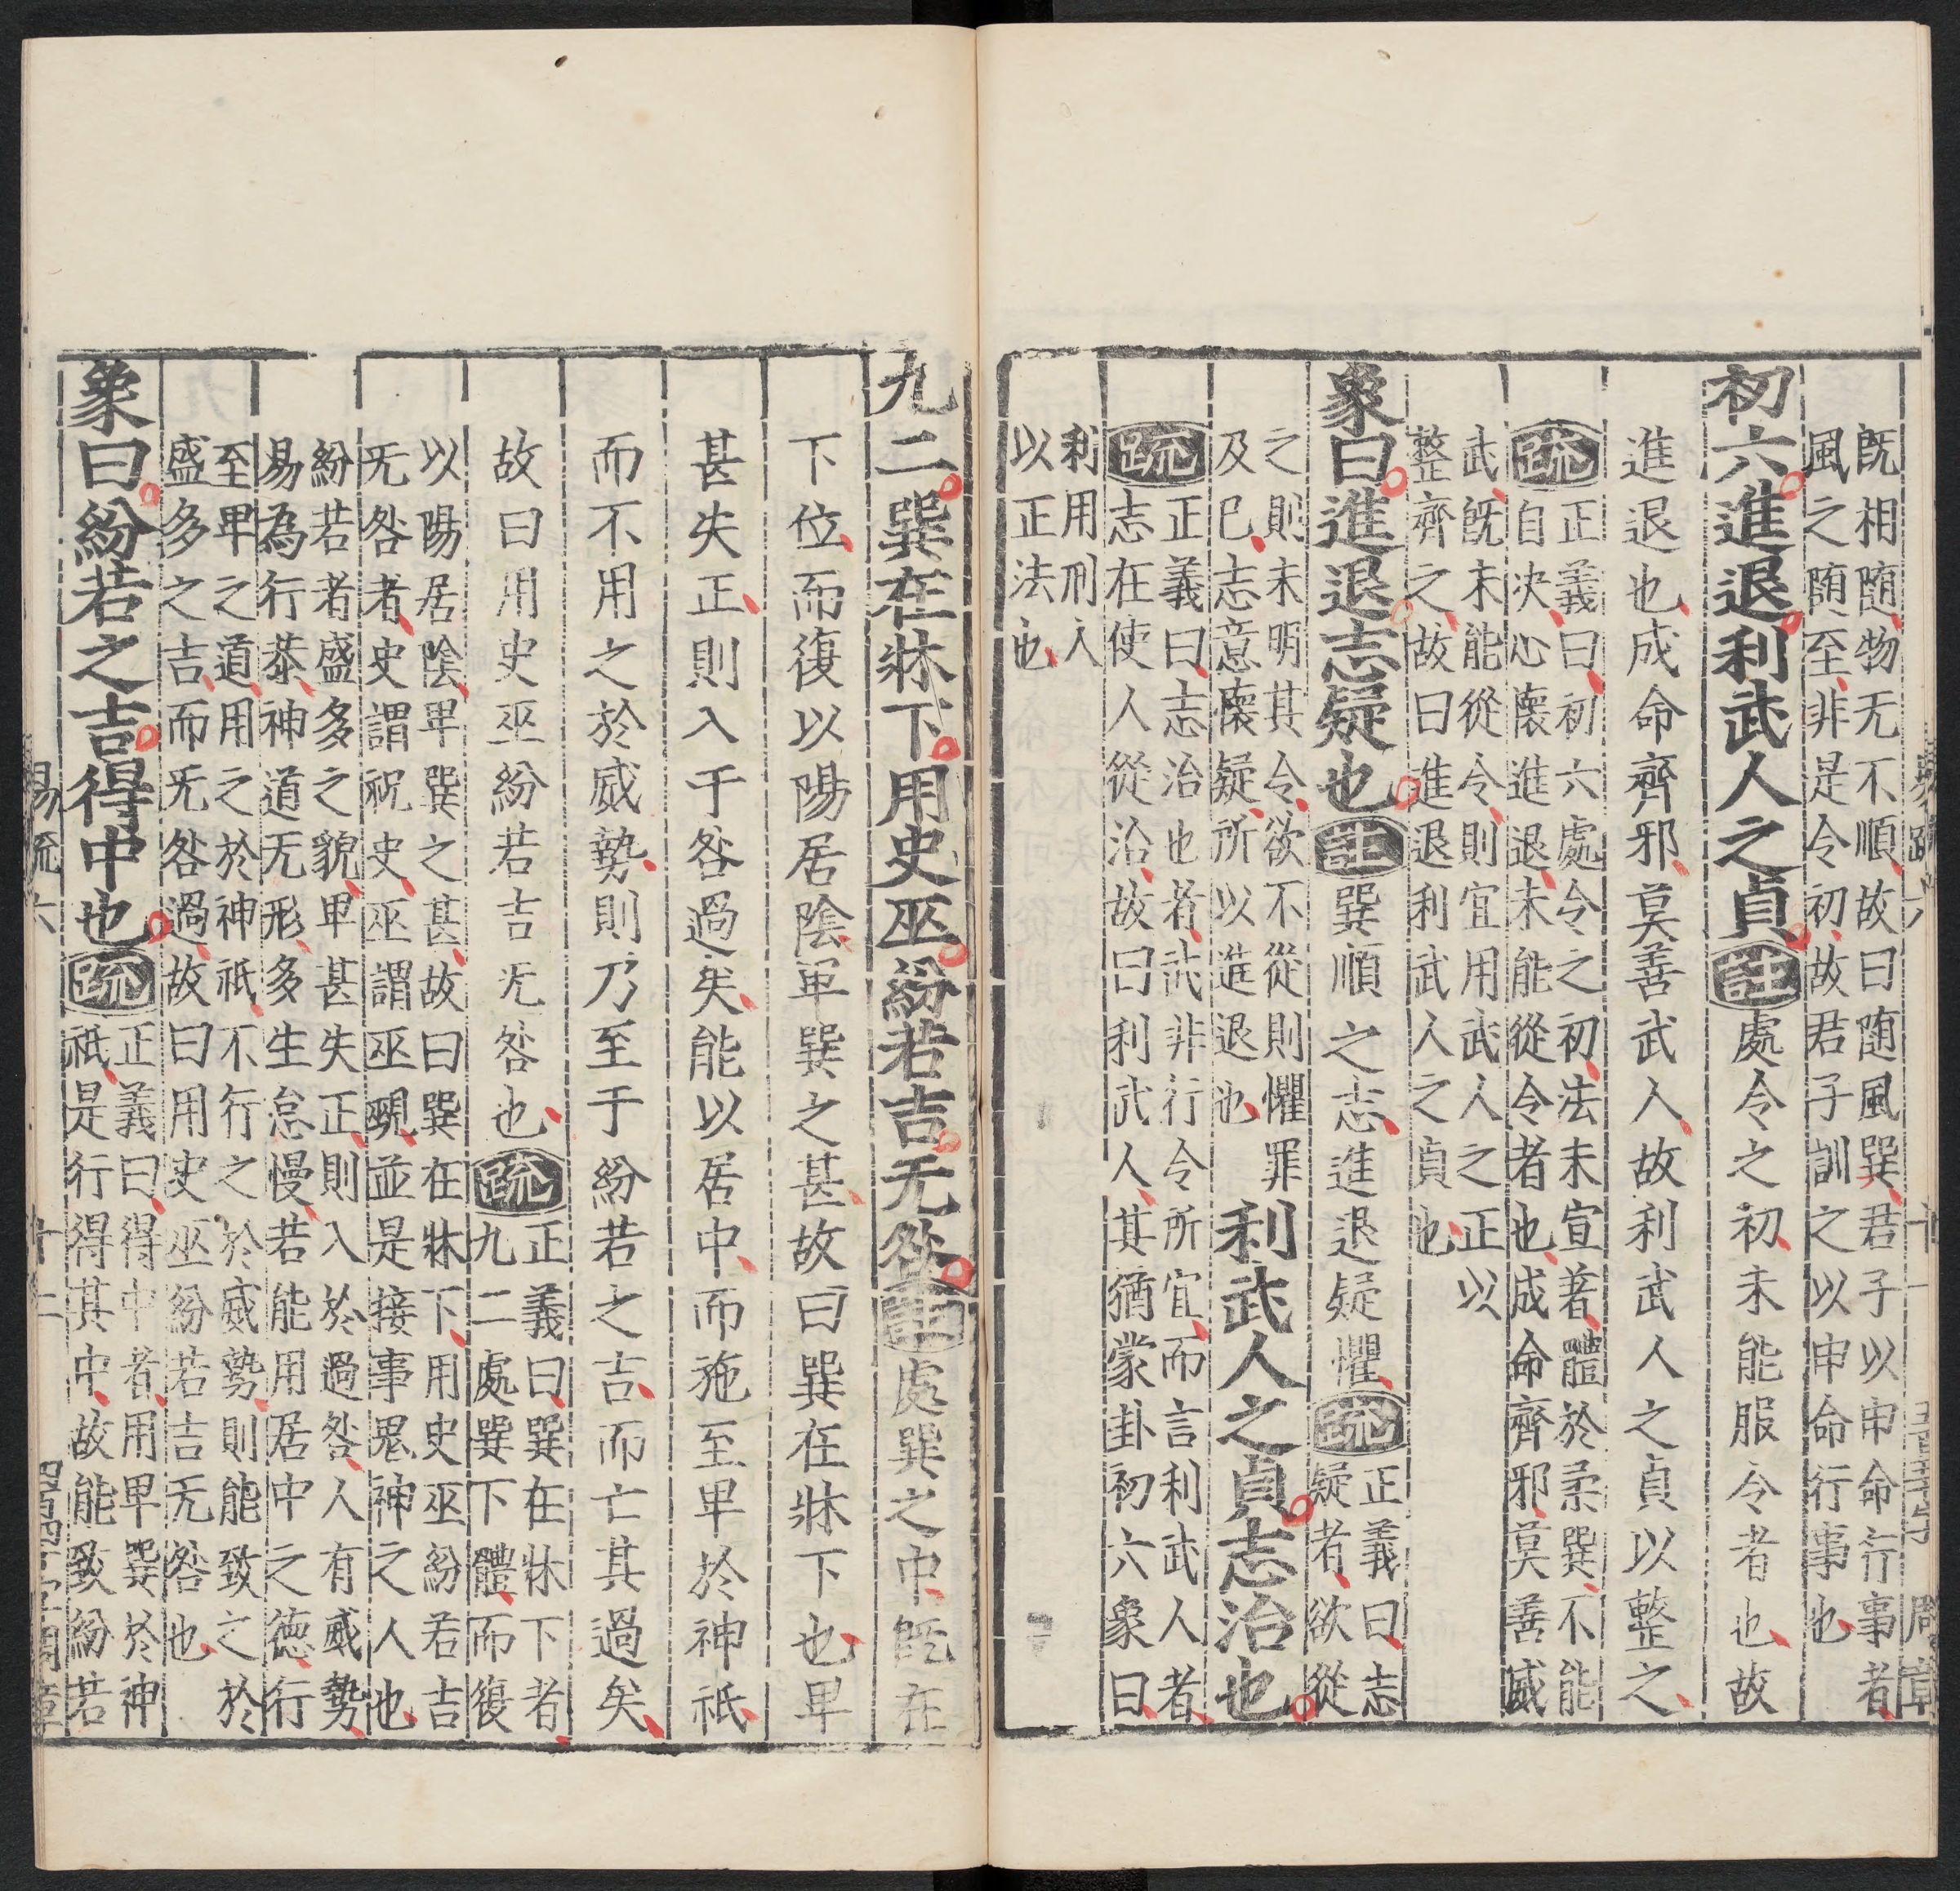 既相随物无不順故曰随風巽君子以申命行事者
風之随至非是令初故君子訓之以申命行事也
初六進退利武人之貞註處令之初未能服令者也故
進退也成命齊邪莫善武人故利武人之貞以整之
疏正義曰初六處令之初法未宣著體於柔巽不能
自决心懷進退未能從令者也成命齊邪莫善威
武既未能從令則宜用武人之正以
整齊之故曰進退利武人之貞也
象曰進退志疑也註巽順之志進退疑懼疏正義曰志
疑者欲從
之則未明其令欲不從則懼罪
及巳志意懷疑所以進退也
利武人之貞志治也
疏正義曰志治也者武非行令所宜而言利武人者
志在使人從治故曰利武人其猶蒙卦初六象曰
利用刑人
以正法也
九二巽在牀下用史巫紛若吉无咎註處巽之中既在
下位而復以陽居陰卑巽之甚故曰巽在牀下也卑
甚失正則入于咎過矣能以居中而施至卑於神祇
而不用之於威勢則乃至于紛若之吉而亡其過矣
故曰用史巫紛若吉无咎也疏正義曰巽在牀下者
九二處巽下體而復
以陽居陰卑巽之甚故曰巽在牀下用史巫紛若吉
无咎者史謂祝史巫謂巫覡並是接事鬼神之人也
紛若者盛多之貌卑甚失正則入於過咎人有威勢
易為行恭神道无形多生怠慢若能用居中之德行
至卑之道用之於神祇不行之於威勢則能致之於
盛多之吉而无咎過故曰用史巫紛若吉无咎也
象曰紛若之吉得中也疏正義曰得中者用卑巽於神
祇是行得其中故能致紛若
易疏六
十二